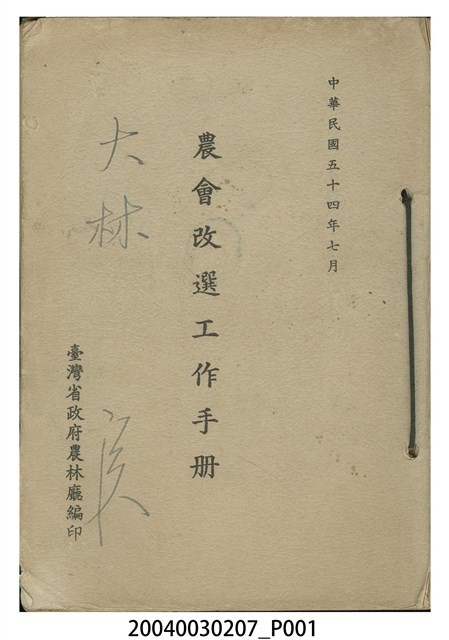 中華民國五十四年七月
農會改選工作手册
大林
臺灣省政府農林廳編印
20040030207_P001